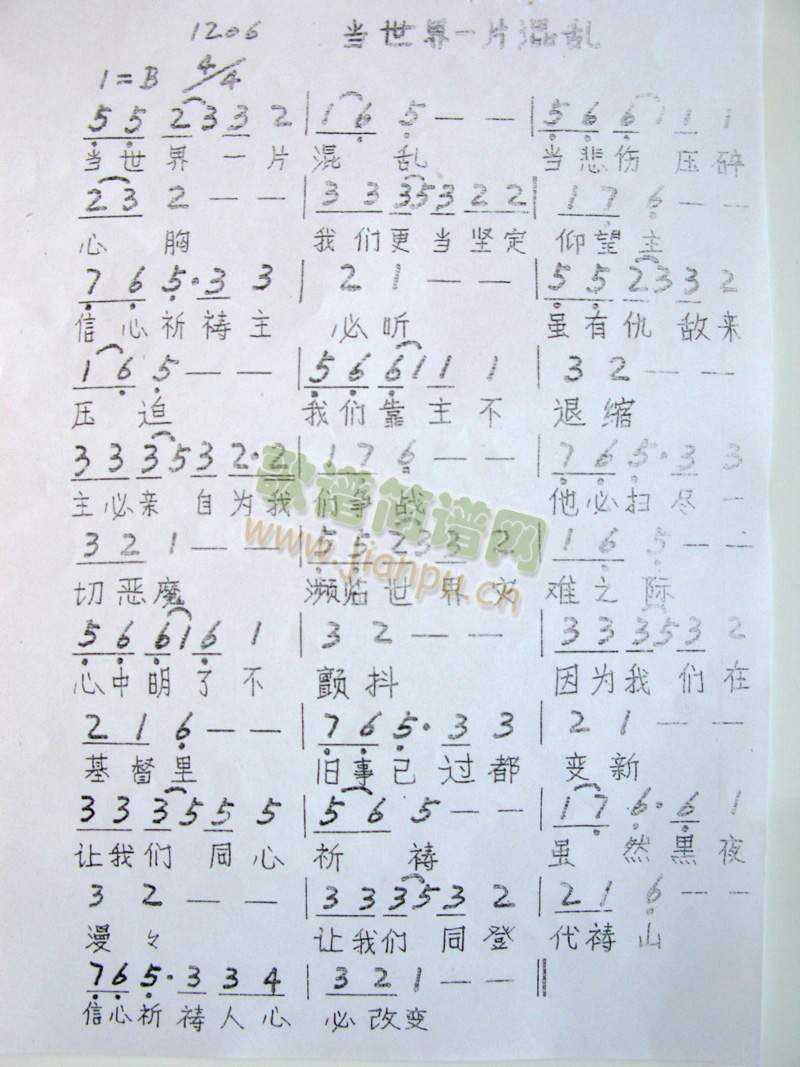 1206 当世界一片混乱
1=B 4/4
5 5 2 3 3 2 | 1 6 5 — — | 5 6 6 1 1 1
当世界一片混乱 当悲伤压碎
2 3 2 — — | 3 3 3 5 3 2 2 | 1 7 6 — —
心胸 我们更当坚定 仰望主
7 6 5· 3 3 | 2 1 — — | 5 5 2 3 3 2
信心祈祷主 必听 虽有仇敌来
1 6 5 — — | 5 6 6 1 1 1 | 3 2 — —
压迫 我们靠主不 退缩
3 3 3 5 3 2·2 | 1 7 6 — — | 7 6 5· 3 3
主必亲自为我 们争战 他必扫尽一
3 2 1 — — | 5 5 2 3 3 2 | 1 6 5 — —
切恶魔 濒临世界灾 难之际
5 6 6 1 6 1 | 3 2 — — | 3 3 3 5 3 2
心中明了不 颤抖 因为我们在
2 1 6 — — | 7 6 5· 3 3 | 2 1 — —
基督里 旧事已过都 变新
3 3 3 5 5 5 | 5 6 5 — — | 1 7 6· 6 1
让我们同心 祈祷 虽然黑夜
3 2 — — | 3 3 3 5 3 2 | 2 1 6 — —
漫々 让我们同登 代祷山
7 6 5· 3 3 4 | 3 2 1 — —
信心祈祷人心 必改变
歌谱简谱网
www.jianpu.cn